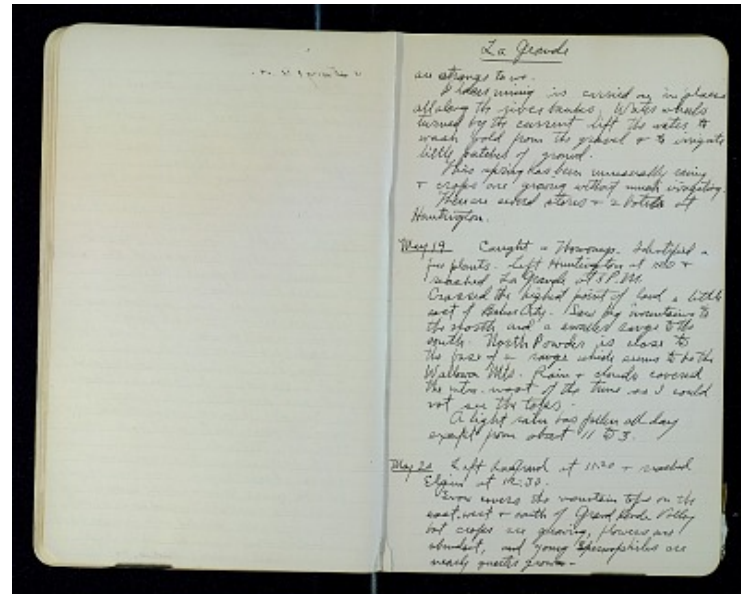 La Grande
are strange to me.
Placer mining is carried on in places
all along the river banks. Water wheels
turned by the current lift the water to
wash gold from the gravel & to irrigate
little patches of ground.
This spring has been unusually rainy
& crops are growing without much irrigating.
There are several stores & 2 hotels at
Huntington.
May 19 Caught a Thomomys. Identified a
few plants. Left Huntington at &
reached La Grande at 5 P.M.
Crossed the highest point of land a little
east of Baker City. Saw big mountains to
the north and a smaller range to the
south. North Powder is close to
the base of a range which seems to be the
Wallowa Mts. Rain & clouds covered
the mts. most of the time so I could
not see the tops.
A light rain has fallen all day
except from about 11 to 3.
May 20 Left LaGrande at 11:20 & reached
Elgin at 12:30.
Snow covers the mountain tops on the
east, west & south of Grand Ronde Valley
but crops are growing, flowers are
abundant, and young Spermophilus are
nearly quarter grown-